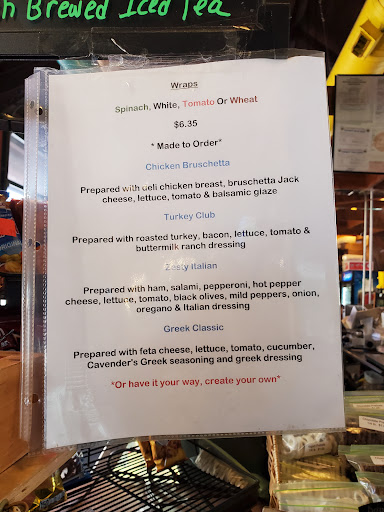 h Brewed Iced Tea
Wraps
Spinach, White, Tomato Or Wheat
$6.35
* Made to Order*
Chicken Bruschetta
Prepared with deli chicken breast, bruschetta Jack
cheese, lettuce, tomato & balsamic glaze
Turkey Club
Prepared with roasted turkey, bacon, lettuce, tomato &
buttermilk ranch dressing
Zesty Italian
Prepared with ham, salami, pepperoni, hot pepper
cheese, lettuce, tomato, black olives, mild peppers, onion,
oregano & Italian dressing
Greek Classic
Prepared with feta cheese, lettuce, tomato, cucumber,
Cavender's Greek seasoning and greek dressing
*Or have it your way, create your own*